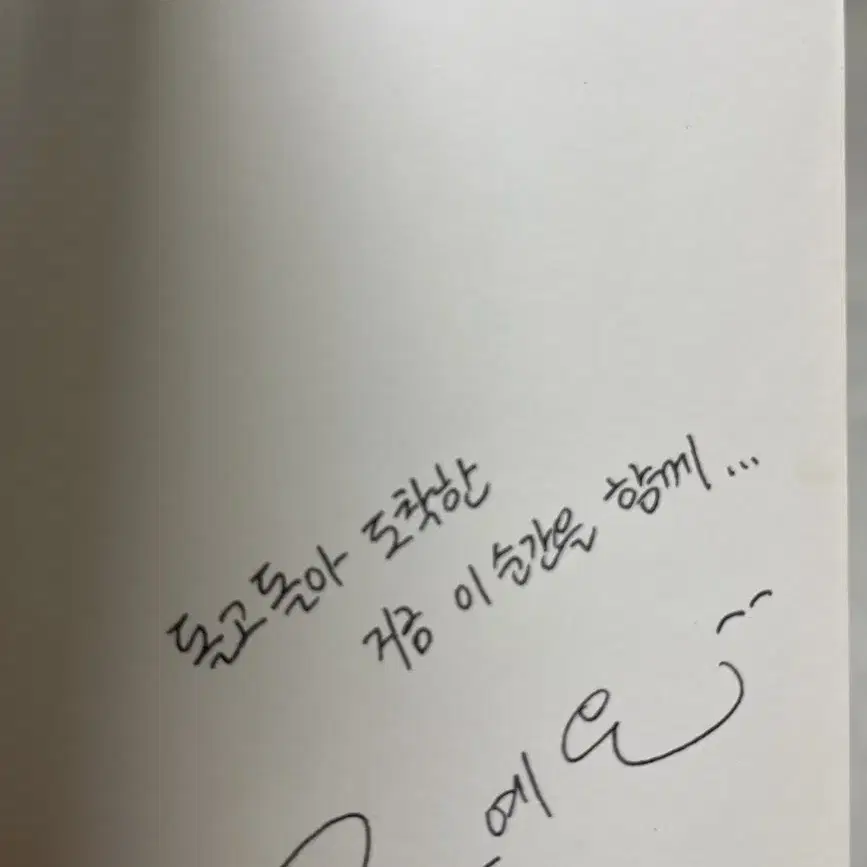 돌고 돌아 도착한
지금 이 순간을 함께...
예